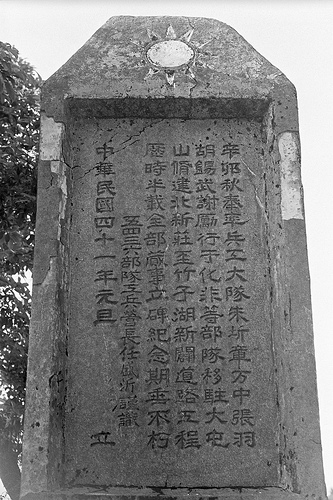 辛卯秋奉率兵工大隊朱圻軍方中張羽
胡錫武謝勵行于化非等部隊移駐大屯
山脩建北新莊至竹子湖新闢道路工程
歷時半載全部蕆事立碑紀念期垂不朽
五四三部隊工兵營長任鳳沂謹識
中華民國四十一年元旦 立